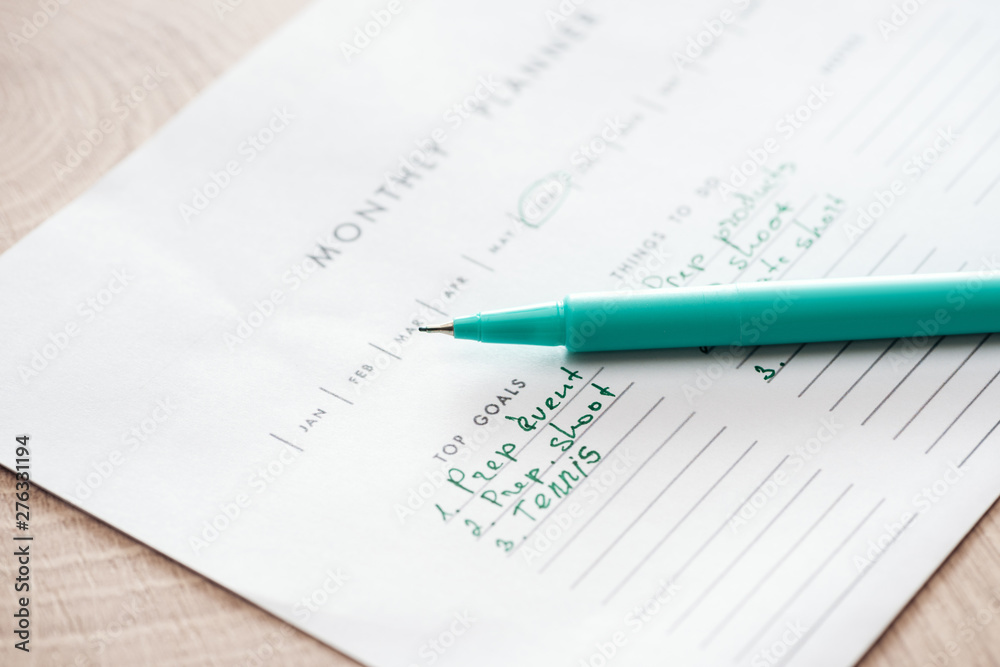 MONTHLY PLANNER
JAN | FEB | MAR | APR | MAY
TOP GOALS
1. Prep event
2. Prep. shoot
3. Tennis
THINGS TO DO
Prep products
shoot
3.
Adobe Stock | #276381194